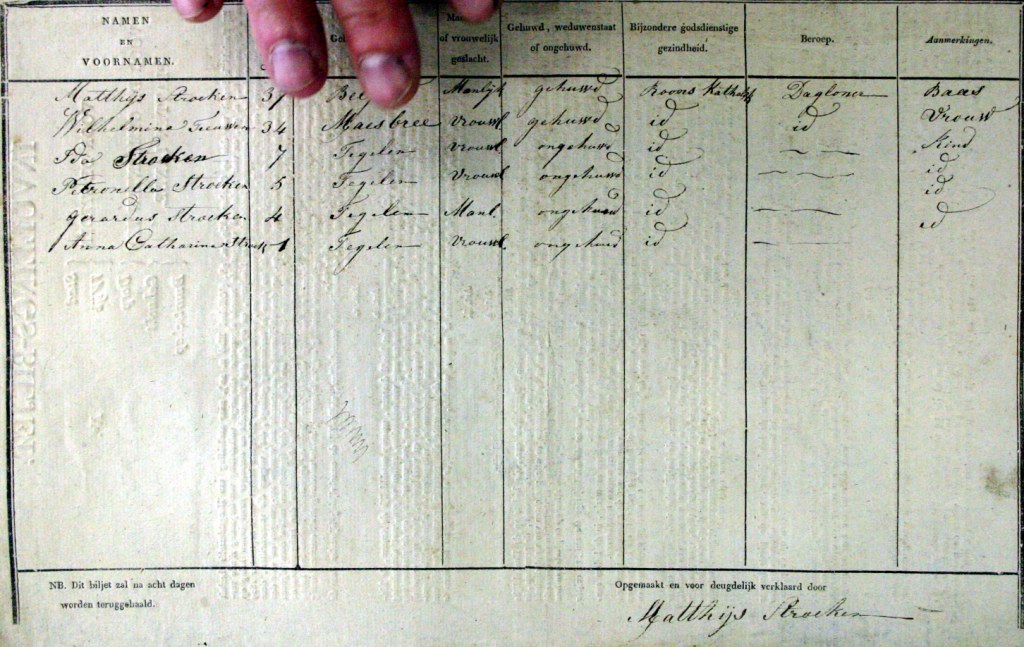 NAMEN
EN
VOORNAMEN.
of vrouwelijk
geslacht.
Gehuwd, weduwenstaat
of ongehuwd.
Bijzondere godsdienstige
gezindheid.
Beroep.
Aanmerkingen.
Matthijs Stroeken 37 Manlijk gehuwd Rooms Kathol Dagloner Baas
Wilhelmina Teeuwen 34 Maesbree vrouwl gehuwd id id vrouw
Ida Stroeken 7 Tegelen vrouwl ongehuwd id Kind
Petronella Stroeken 5 Tegelen vrouwl ongehuwd id id
Gerardus Stroeken 4 Tegelen Manl. ongehuwd id id
Anna Catharina Stroek 1 Tegelen vrouwl. ongehuwd id id
NB. Dit biljet zal na acht dagen
worden teruggehaald.
Opgemaakt en voor deugdelijk verklaard door
Matthijs Stroeken